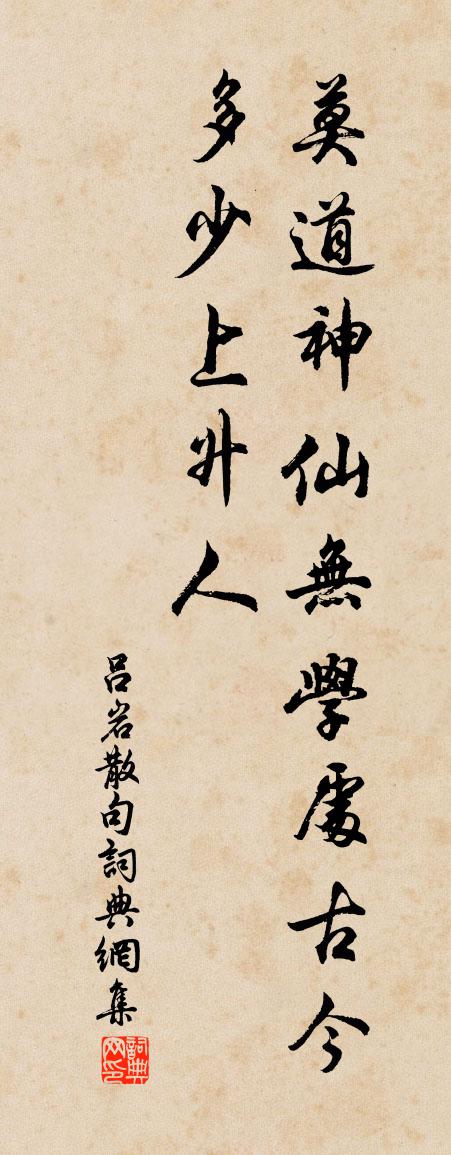 莫道神仙無學處古今
多少上升人
吕岩散句詞典網集
詞典网印